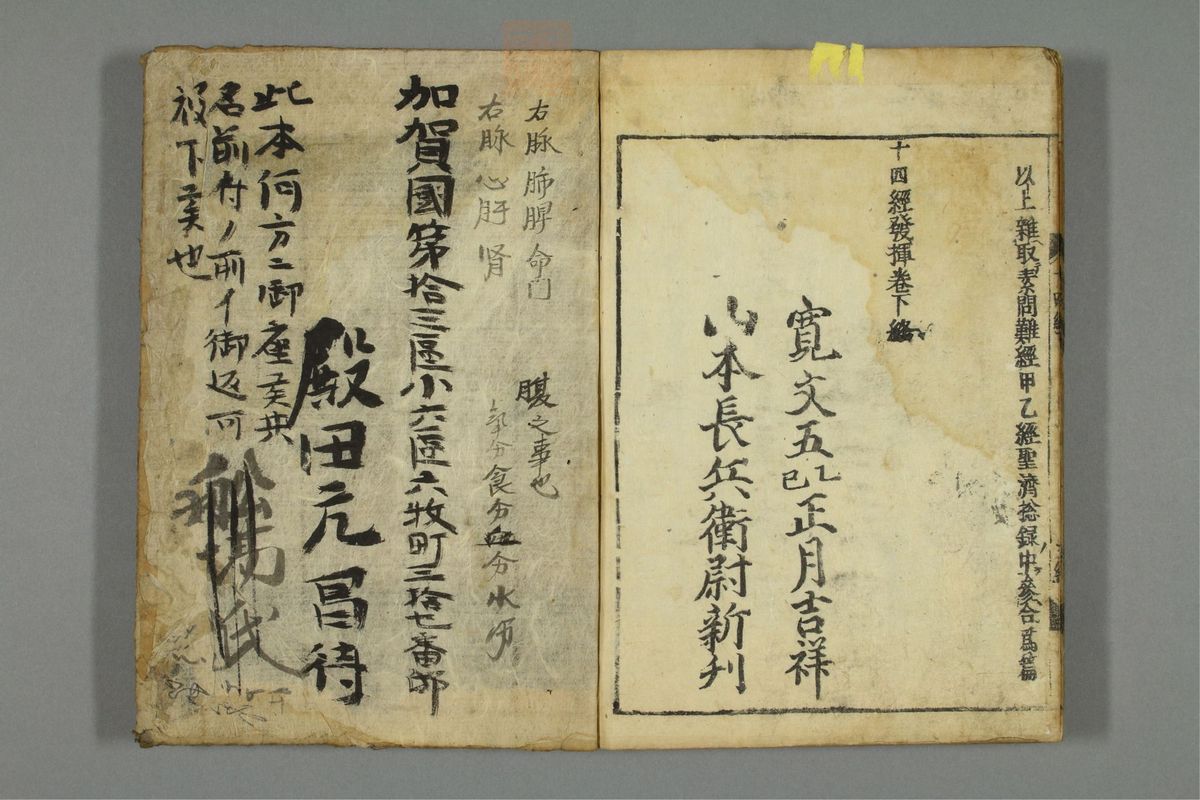 以上雜取素問難經甲乙經聖濟捴録中參合爲篇
十四經發揮卷下終
寛文五乙巳正月吉祥
山本長兵衛尉新刋
右脉肺脾命门
右脉心肝腎
腹之事也
氣分食分血分水分
加賀國第拾三區小六區六牧町三拾七番邸
殿田元昌待
此本何方ニ御座矦共
名前付ノ前イ御返可
被下矦也